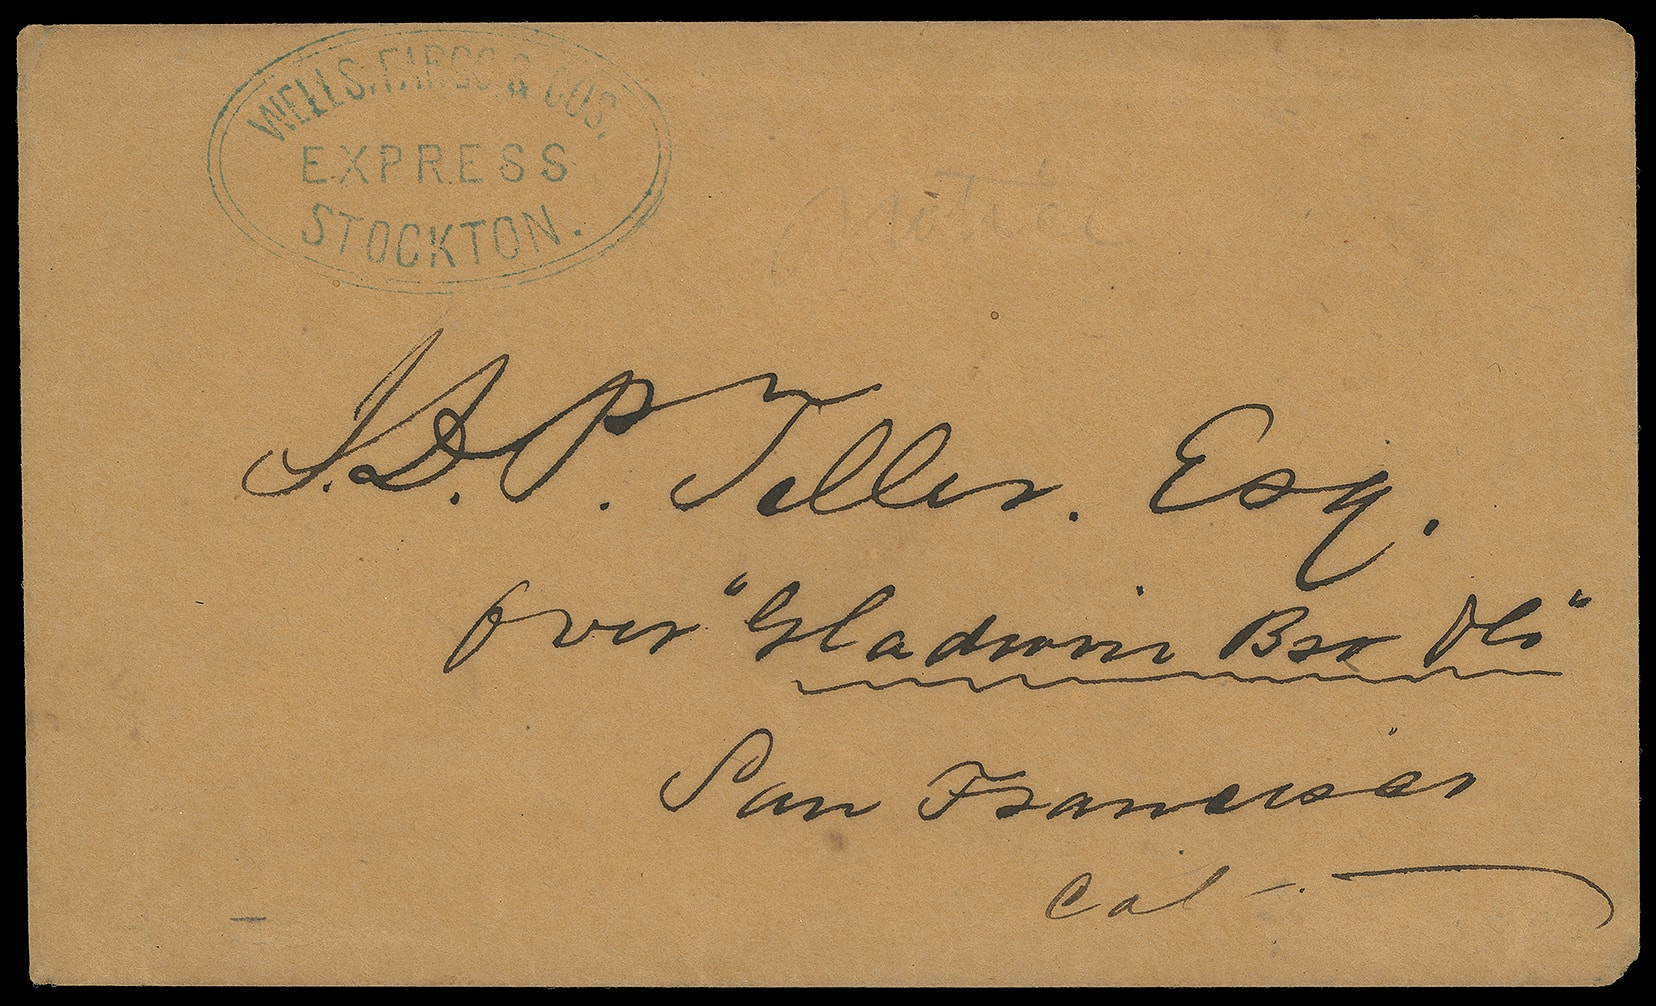 WELLS, FARGO & COS.
EXPRESS
STOCKTON.
J. D. P. Teller. Esq.
over "Gladwin Bro
San Francisco
Cal